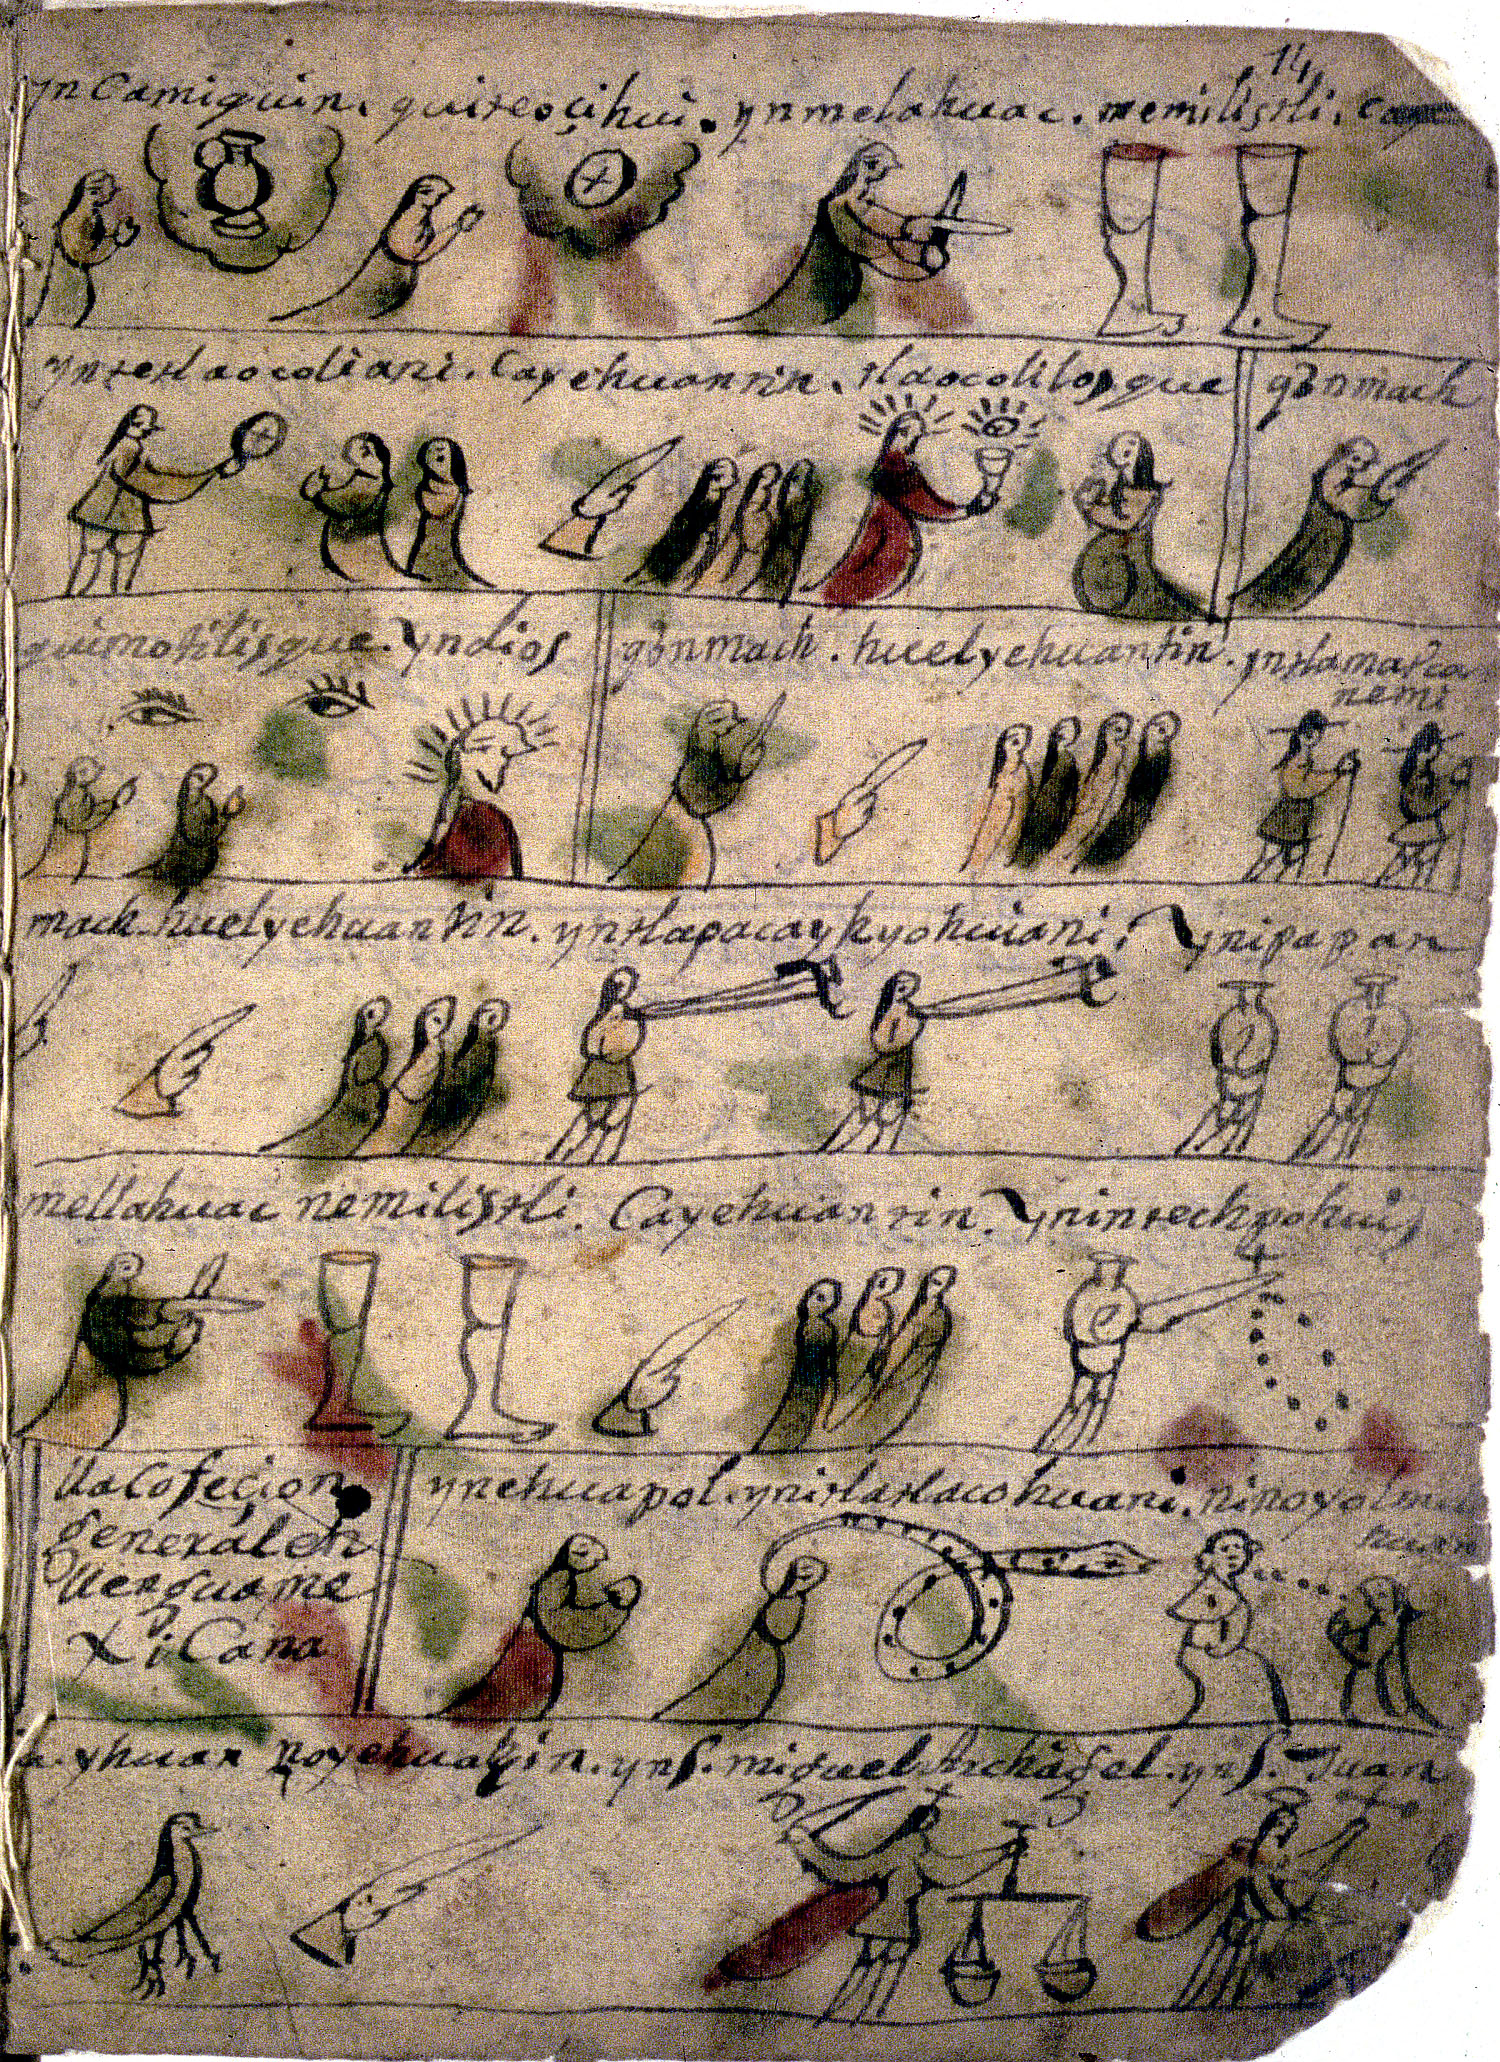 14
yn Camiquin, quiteoçihui. yn melahuac. nemilistli. Cay
yn tetlaocoliani. Cayehuantin. tlaocolilosque yn mach
quimotilisque. yn dios yn mach. huelyehuantin. yn tlamatca
nemi
mach huelyehuantin. yn tlapacaykyohuiani. yn ipapan
mellahuac nemilistli. Cayehuantin. yn intechpohuis
lla Cofeçion
general en
llengua me
xiCana
ynehuapol. yni tlatlacohuani. ninoyolmei
a. yhuan noyehuatzin. yn S. miguel Archagel. yn S. Juan